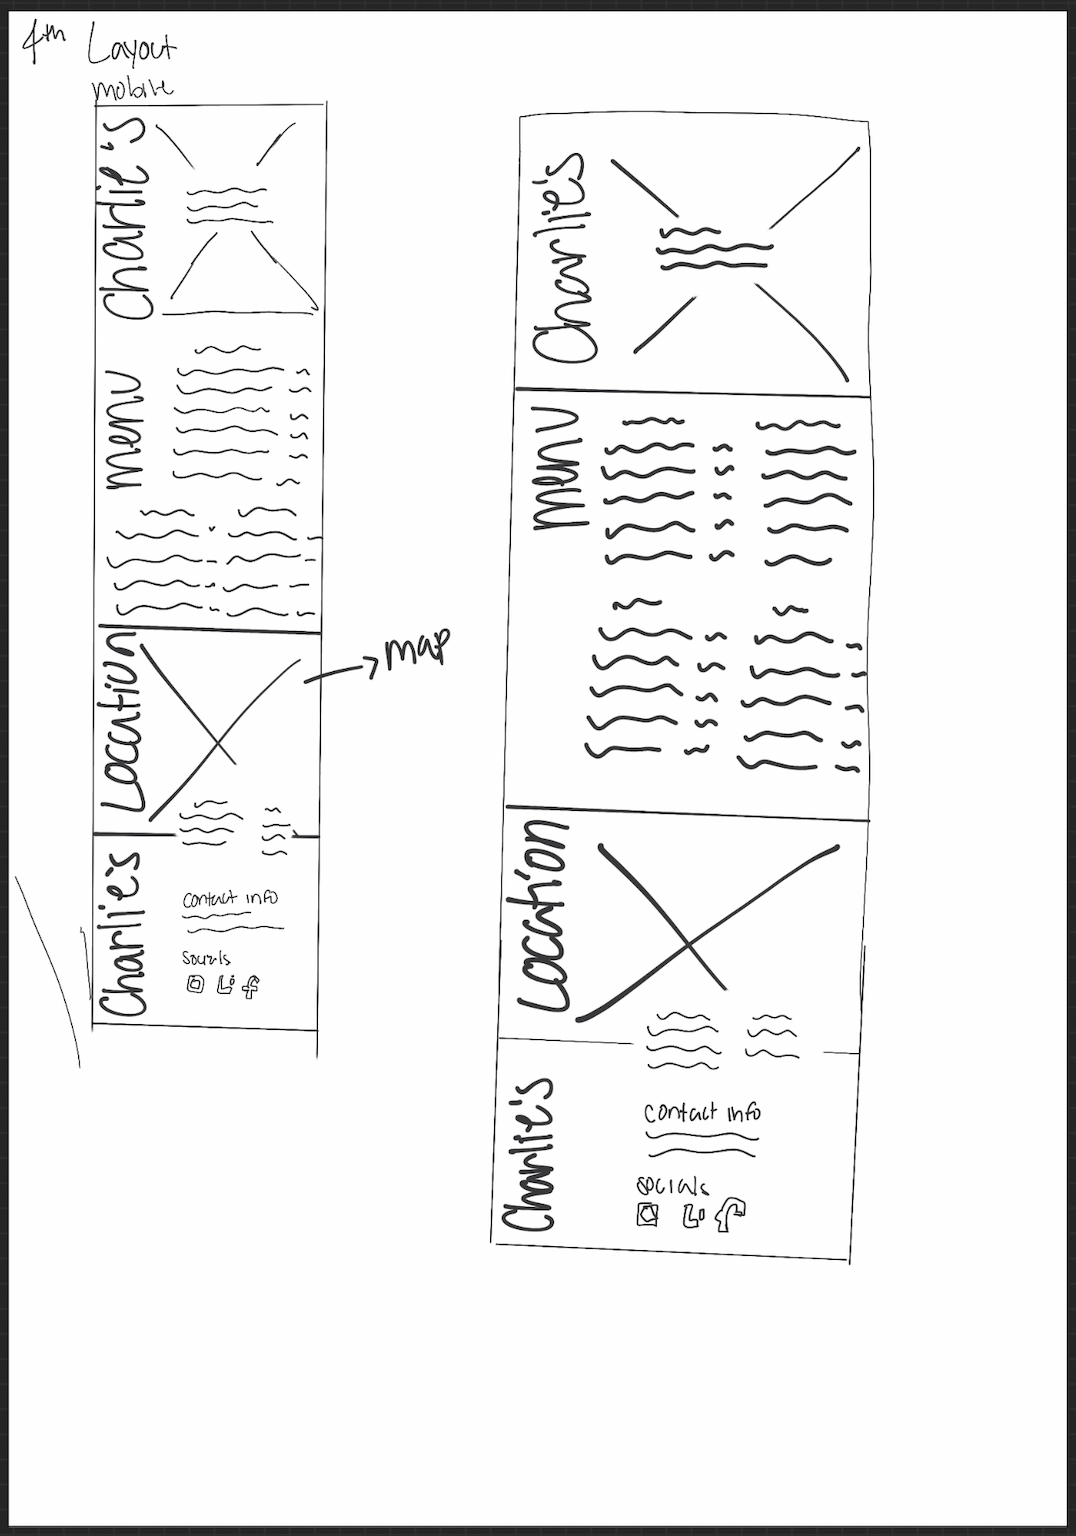 4th Layout
mobile
Charlie's
menu
Location
map
Charlie's
Contact info
Socials
Charlie's
menu
Location
Charlie's
Contact info
Socials